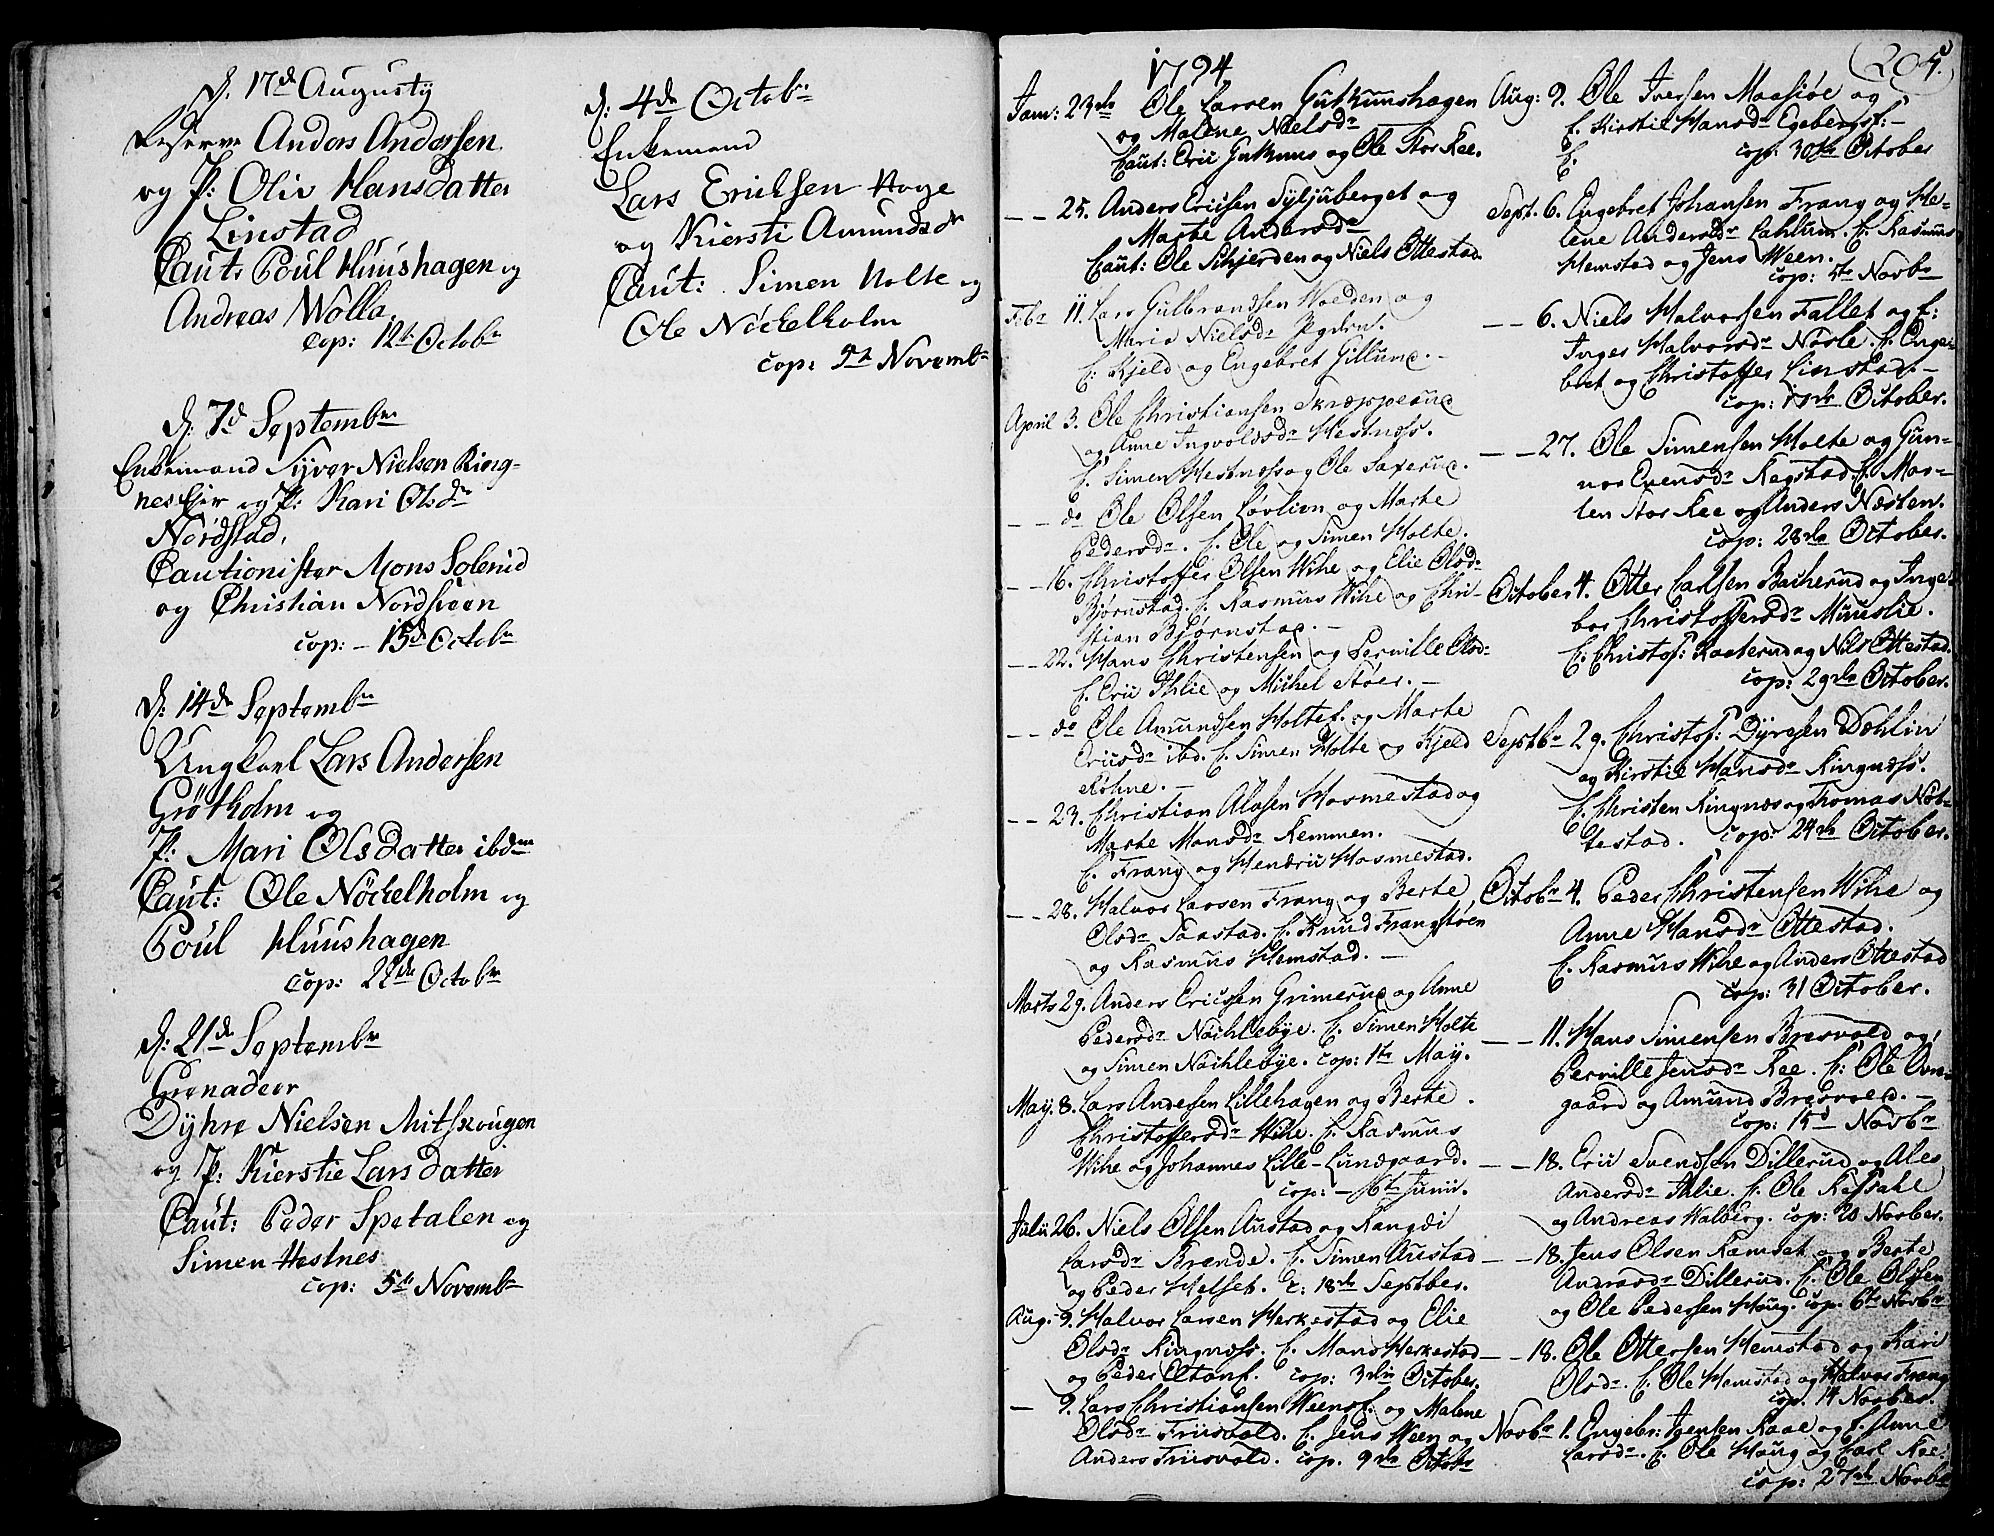 D. 17de Augustij
Reserve Anders Anderssen
og P: Oliv Hansdatter
Linstad
Caut: Poul Huushagen og
Andreas Wolla
cop: 12te Octobr
D: 7d Septembr
Enkemand Syver Nielsen Ring-
nes Eier og P: Kari Olsdr
Nordstad.
Cautionister Mons Solerud
og Christian Nordsveen
cop: - 15d Octobr
D: 14de Septembr
Ungkarl Lars Andersen
Grötholm og
P: Mari Olsdatter ibdm
Caut: Ole Nöckelholm og
Poul Huushagen
cop: 22de Octobr
D: 21de Septembr
Grenadeer
Dyhre Nielsen Mitskougen
og P: Kierstie Larsdatter
Caut: Peder Spetalen og
Simen Hestnes
cop: 5te Novembr
D: 4de Octobr
Enkemand
Lars Ericksen Hoge
og Kiersti Amundsdr
Caut: Simen Holte og
Ole Nöckelholm
cop: 5te Novembr
1794
Jan: 23de Ole Larsen Gutkuushagen
og Malene Nielsdr
Caut: Eric Gutkuus og Ole Stor Ree.
-- 25. Anders Ericsen Syljuberget og
Marte Andersdr
Caut: Ole Schjerden og Niels Ottestad
Febr 11. Lars Gulbrandsen Woeden og
Marie Nielsdr Jegdrn.
C: Kjeld og Engebret Gillund. -
April 3. Ole Christiansen Skræpperud
og Anne Ingvoldsdr Hestnæss.
C. Simen Hestnæss og Ole Saxerud.
-- do Ole Olsen Lovlien og Marte
Pedersdr. C. Ole og Simen Holte.
-- 16. Christoffer Olsen Wihe og Elie Olsd:
Bjørnstad. C. Rasmus Wihe og Chri-
stian Bjørnstad. -
-- 22. Hans Christensen og Pernille Olsd:
C. Eric Ihlie og Michel Støer. -
-- do Ole Amundsen Holtef. og Marte
Ericsdr ibd. C. Simen Holte og Kjeld
Rohne. -
-- 23. Christian Olsen Hosmestad og
Marte Monsdr Remmen.
C. Frang og Hendric Hosmestad.
-- 28. Halvor Larsen Frang og Berte
Olsdr Saastad. C. Knud Frangstøen
og Rasmus Hemstad. -
Marts 29. Anders Ericsen Grimerud og Anne
Pedersdr Nachlebye. C. Simen Holte
og Simen Nachlebye. cop: 1te May.
May. 8. Lars Andersen Lillehagen og Berte
Christoffersdr Wihe. C. Rasmus
Wihe og Johannes Lille-Lundgaard.
cop: - 16te Junii.
Julii 26. Niels Olsen Austad og Rangdi
Larsdr Brende. C. Simen Austad
og Peder Helset. c: 18de Septber.
Aug. - 9. Halvor Larsen Herkestad og Elie
Olsdr Ringnæss. C. Mans Herkestad
og Peder Etanf. cop: 3die October.
- 9. Lars Christiansen Weensf. og Malene
Olsdr Friisvold. C. Jens Ween og
Anders Friisvold. cop. 9de Octobr
205.
Aug: 9. Ole Iversen Maasiøe og
C. Kirstie Hansdr Egebergsf: -
C. cop: 30te October
Sept. 6. Engebret Johansen Frang og He-
lene Andersdr Lahlum. C. Rasmus
Hemstad og Jens Ween.
cop: 4te Novbr
-- 6. Niels Halvorsen Fallet og C:
Inger Halvorsdr Nosle. C. Enge-
bret og Christoffer Linstad. -
cop: 17de October.
-- 27. Ole Simensen Holte og Gun-
nor Evensdr Regstad. C. Mor-
ten Stor Ree og Anders Næsten.
cop: 28de October.
October 4. Otter Carlsen Bacherud og Inge-
bor Christoffersdr Muuslie.
C. Christof: Raaterud og Nils Ottestad.
cop: 29de October.
Septbr 29. Christof: Dyresen Dohlin
og Kirstie Hansdr Ringnæss.
C. Christen Ringnæs og Thomas Nob-
testad. cop: 24de October.
Octobr 4. Peder Christensen Wihe og
Anne Hansdr Ottestad.
C. Rasmus Wihe og Anders Ottestad
cop: 31 October.
-- 11. Hans Simensen Bræsvold og
Pernille Jensdr Ree. C: Ole Ovn-
gaard og Amund Bræsvold. -
cop: 15d Novbr
-- 18. Eric Svendsen Dillerud og Ales
Andersdr Ihlie. C. Ole Refsahl
og Andreas Walberg. cop: 20 Novber.
-- 18. Jens Olsen Ramset og Berte
Andrasdr Dillerud. C. Ole Olssen
og Ole Pedersen Houg. cop. 6te Novbr
-- 18. Ole Ottersen Hemstad og Kari
Olsdr. C. Ole Hemstad og Halvor Frang
cop. 14 Novber.
Novbr 1. Engebr: Jensen Raae og C. Anne
Larsdr. C. Ole Houg og Carl Ree:
cop: 27de Novbr